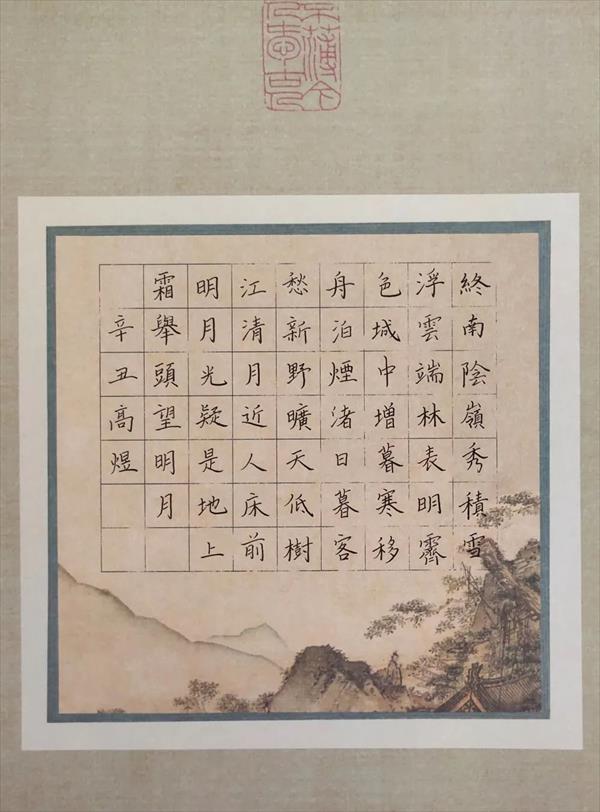 終南陰嶺秀積雪
浮雲端林表明霽
色城中增暮寒移
舟泊煙渚日暮客
愁新野曠天低樹
江清月近人床前
明月光疑是地上
霜舉頭望明月
辛丑高煜